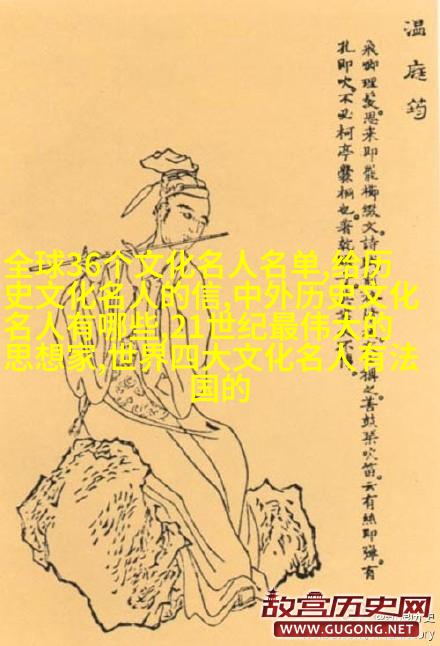 温庭筠
飛卿理髮思来即罷櫛綴文詩
構之善鼓琴吹笛云有絲即彈有
孔即吹不必柯亭爨桐也著乾
全球36个文化名人名单,给历
史文化名人的信,中外历史文化
名人有哪些,21世纪最伟大的
思想家,世界四大文化名人有法
国的
故宫历史网
WWW.GUGONG.NET